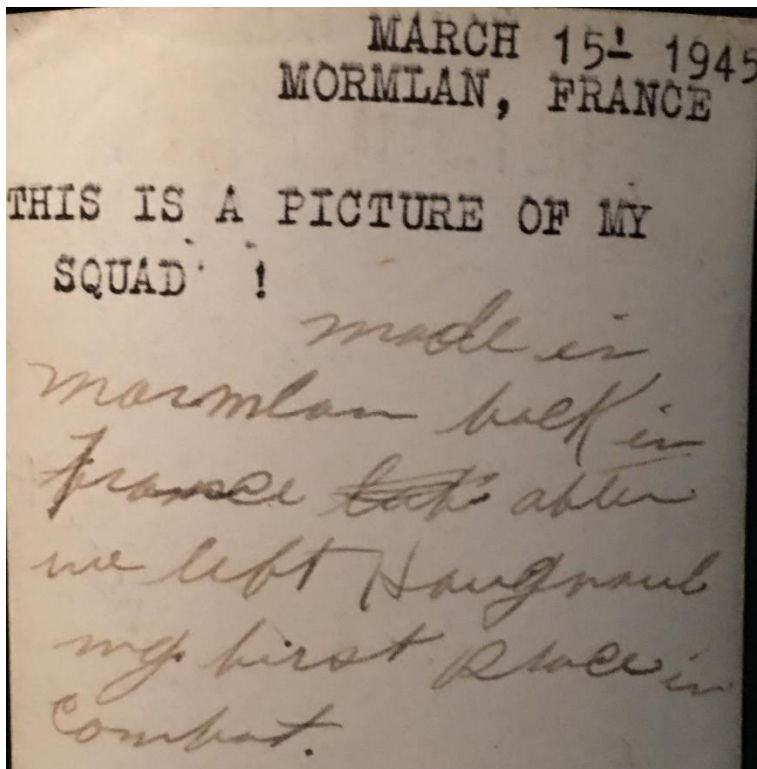 MARCH 15' 1945
MORMLAN, FRANCE
THIS IS A PICTURE OF MY
SQUAD !
made in
mormlan back in
France after
we left
my first place in
Combat.